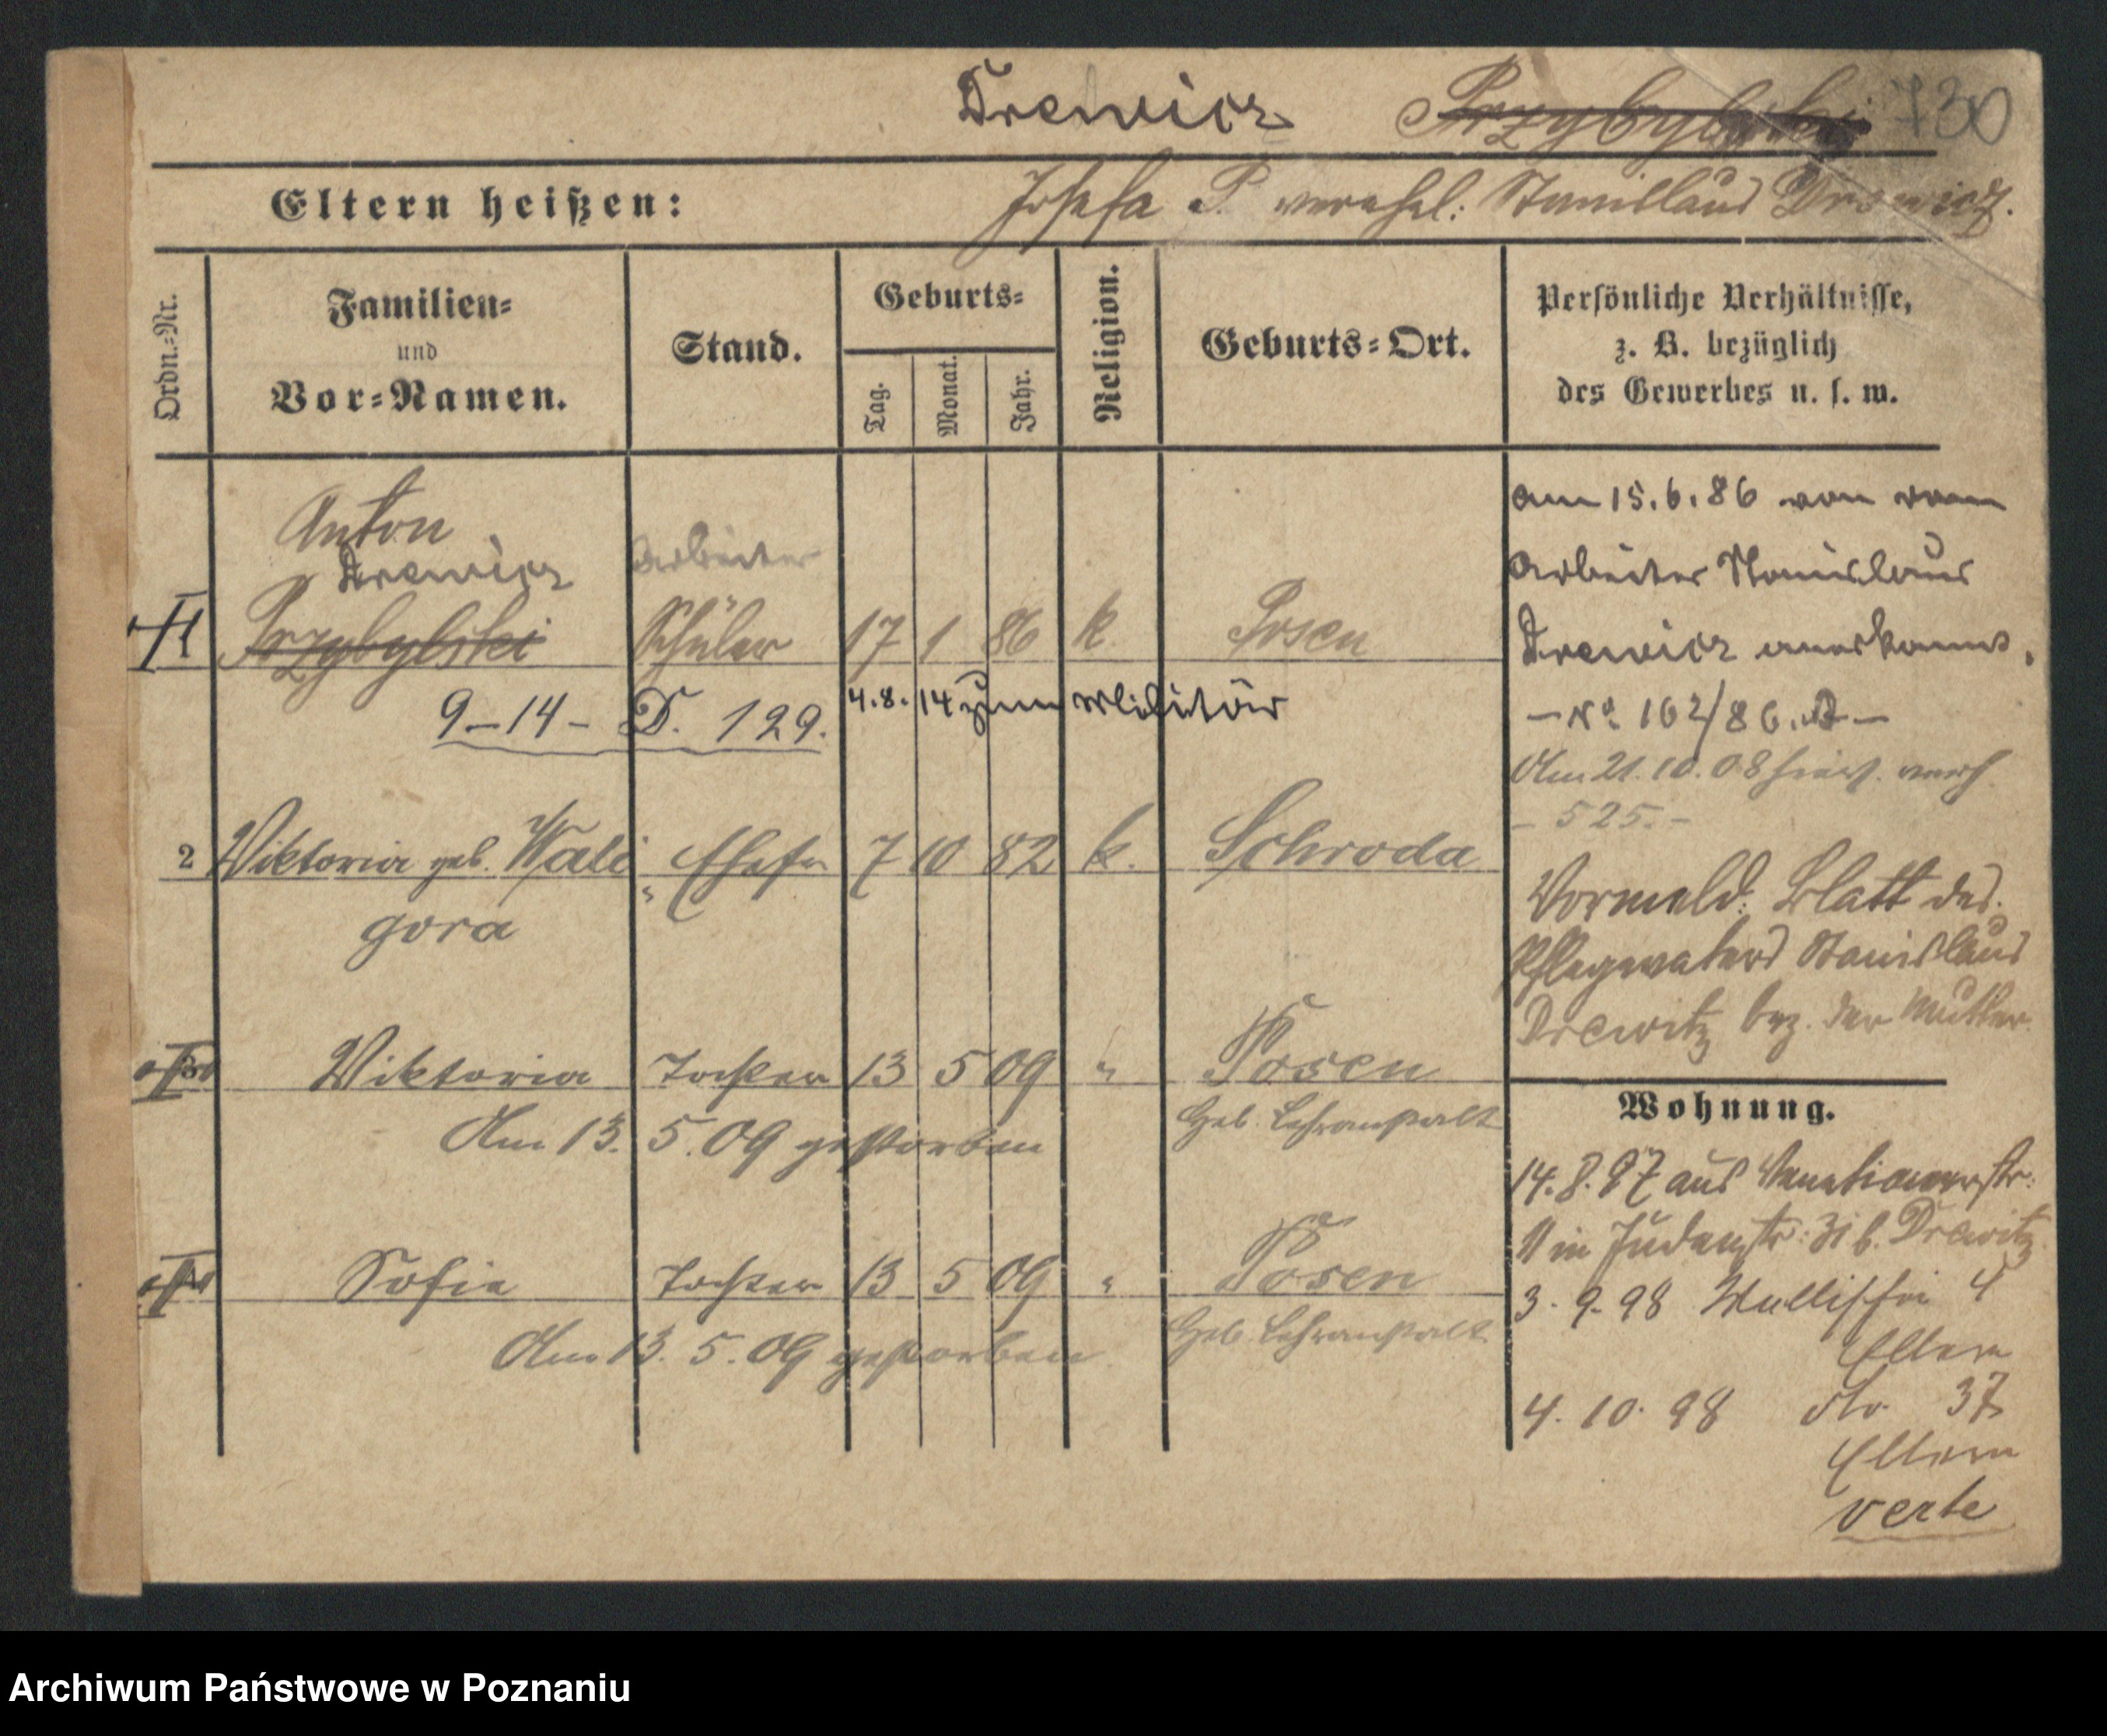 Drewicz Przybylski 730
Eltern heißen: Josefa P. verehel: Stanislaus Drewicz.
Ordn.=Nr.
Familien=
und
Vor=Namen.
Stand.
Geburts=
Tag.
Monat.
Jahr.
Religion.
Geburts=Ort.
Persönliche Verhältnisse,
z. B. bezüglich
des Gewerbes u. s. w.
Anton
Drewicz Arbeiter
1 Przybylski Schüler 17 1 86 k. Posen
9-14- D. 129. 4.8.14 zum Militär
2 Viktoria geb. Wali Ehefr 7 10 82 k. Schroda
gora
3 Viktoria Tochter 13 5 09 " Posen
Am 13. 5. 09 gestorben Heb. Lehranstalt
4 Sofie Tochter 13 5 09 " Posen
Am 13. 5. 09 gestorben Heb. Lehranstalt
am 15.6.86 von
Arbeiter Stanislaus
Drewicz anerkannt.
- No 162/86. -
Am 21.10.08 verh.
- 525. -
Vormeld: Blatt des
Pflegevaters Stanislaus
Drewitz bez. der Mutter
Wohnung.
14.8.97 aus Venetianerstr.
11 in Judenstr: 31 b. Drewitz
3. 9. 98 Wallischei 4
Eltern
4. 10. 98 Str. 37
Eltern
verte
Archiwum Państwowe w Poznaniu